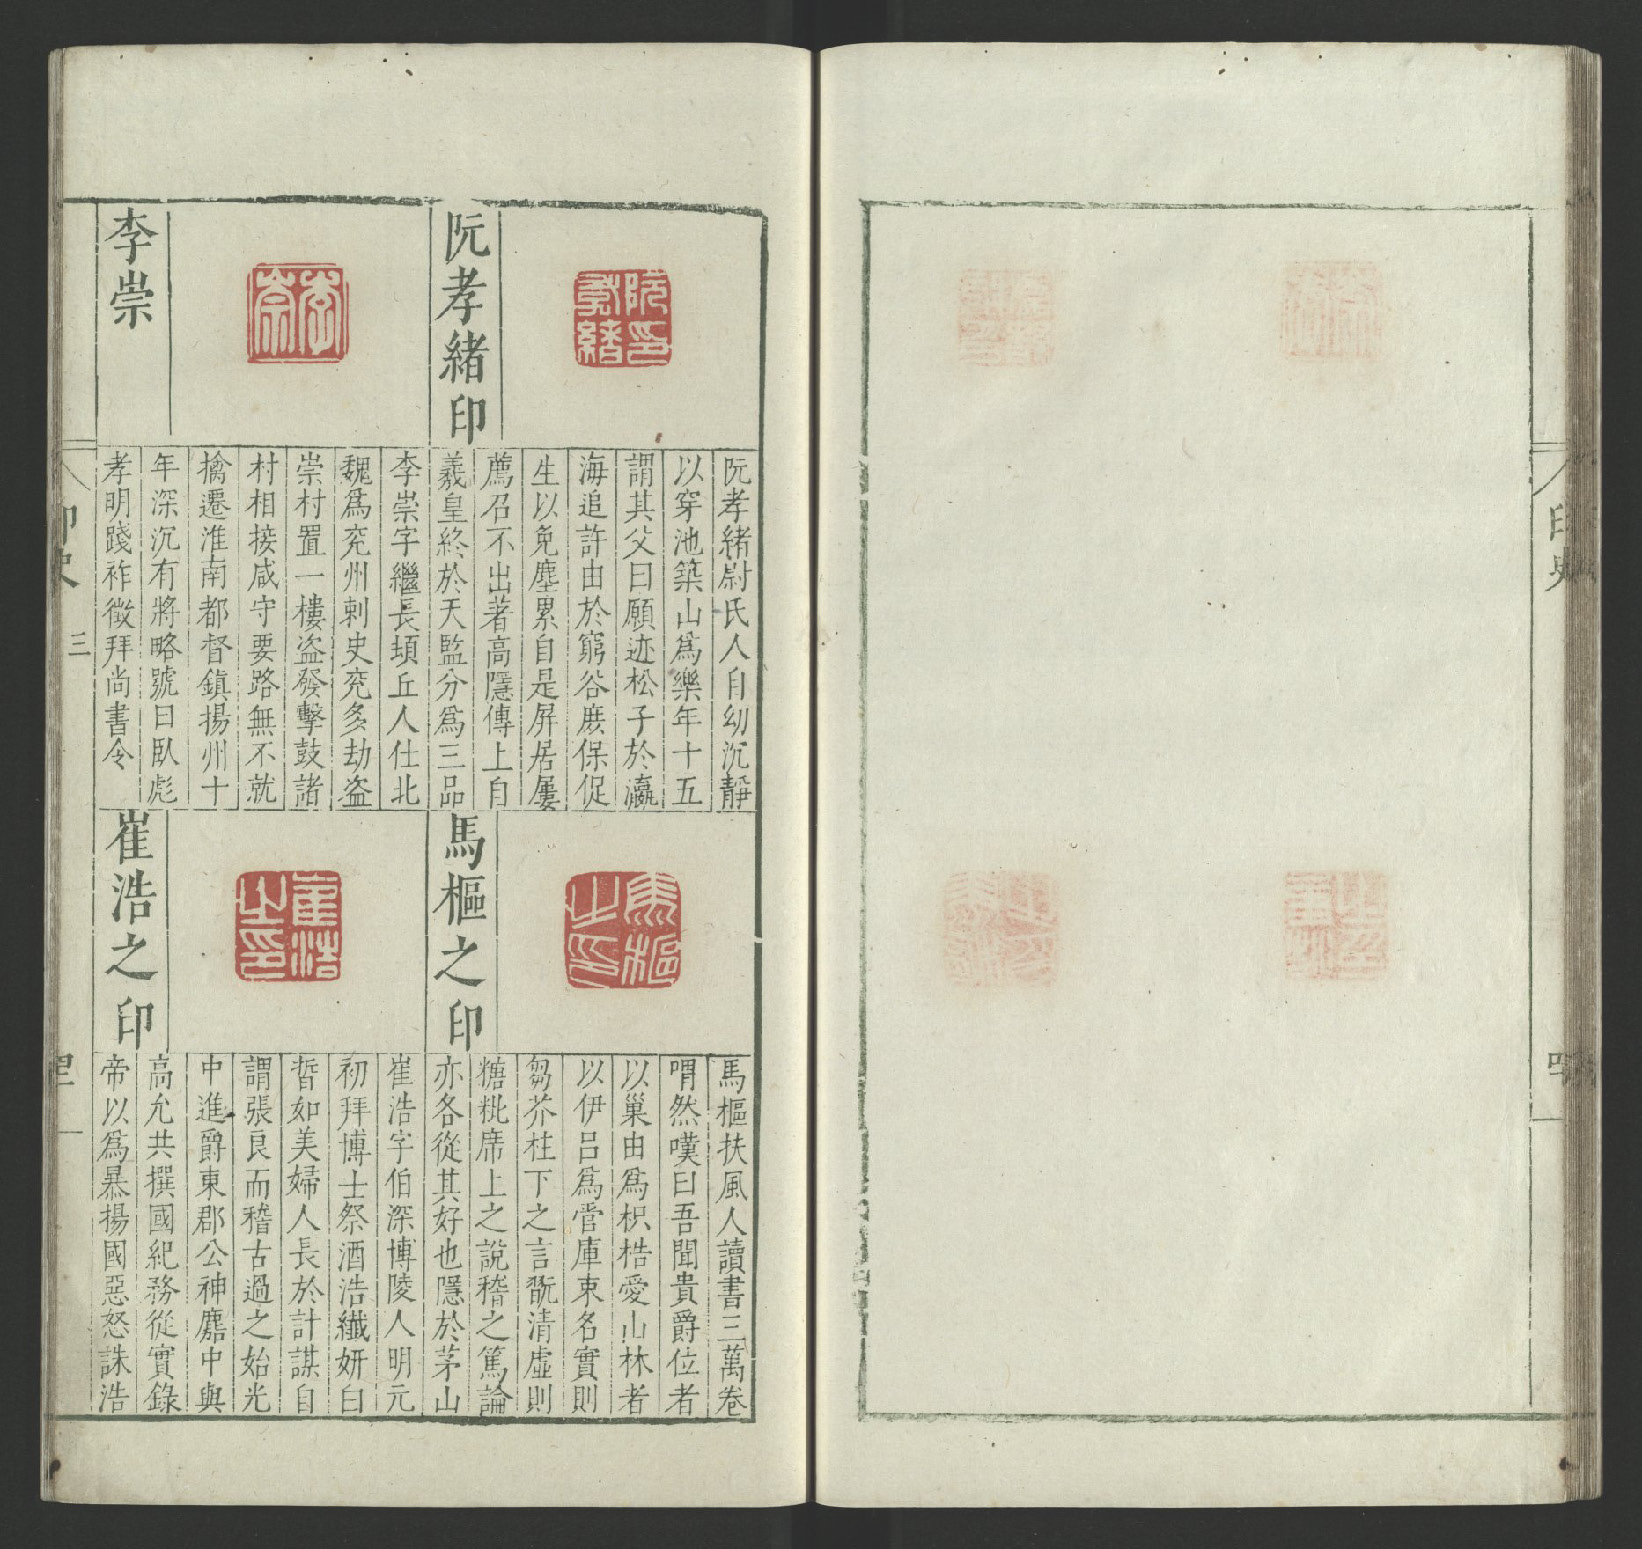 阮孝緒印
阮孝緒尉氏人自幼沉靜
以穿池築山爲樂年十五
謂其父曰願迹松子於瀛
海追許由於窮谷庶保促
生以免塵累自是屏居屢
薦召不出著高隱傳上自
羲皇終於天監分爲三品
李崇
李崇字繼長頓丘人仕北
魏爲兖州刺史兖多劫盗
崇村置一樓盗發擊鼓諸
村相接咸守要路無不就
擒遷淮南都督鎮揚州十
年深沉有將略號曰臥彪
孝明踐祚徵拜尚書令
馬樞之印
馬樞扶風人讀書三萬卷
喟然嘆曰吾聞貴爵位者
以巢由爲枳梏愛山林者
以伊呂爲管庫束名實則
芻芥柱下之言翫清虛則
糖粃席上之說稽之篤論
亦各從其好也隱於茅山
崔浩之印
崔浩字伯深博陵人明元
初拜博士祭酒浩纎妍白
晳如美婦人長於計謀自
謂張良而稽古過之始光
中進爵東郡公神䴥中與
高允共撰國紀務從實錄
帝以爲暴揚國惡怒誅浩
印史
三